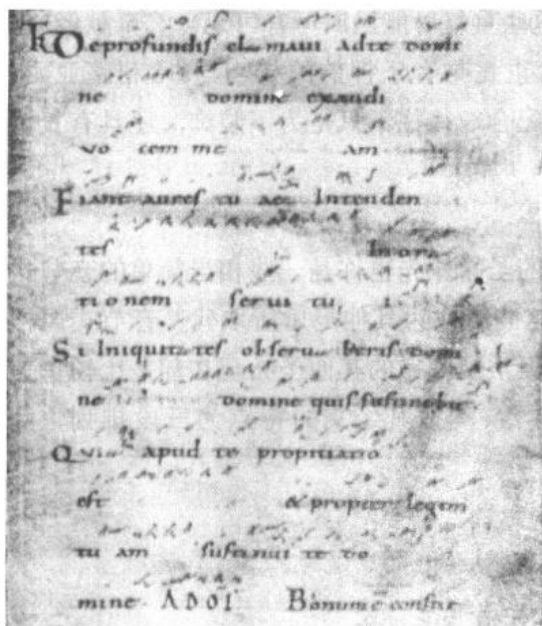 TR De profundis clamaui ad te domi
ne domine exaudi
vo cem me am
Fiant aures tu ae Intenden
tes In ora
tionem serui tu i
Si Iniquitates obseruaueris domi
ne domine quis sustinebit
Quia apud te propitiatio
est & propter legem
tu am sustinui te do
mine A D O I Bonum ē confite